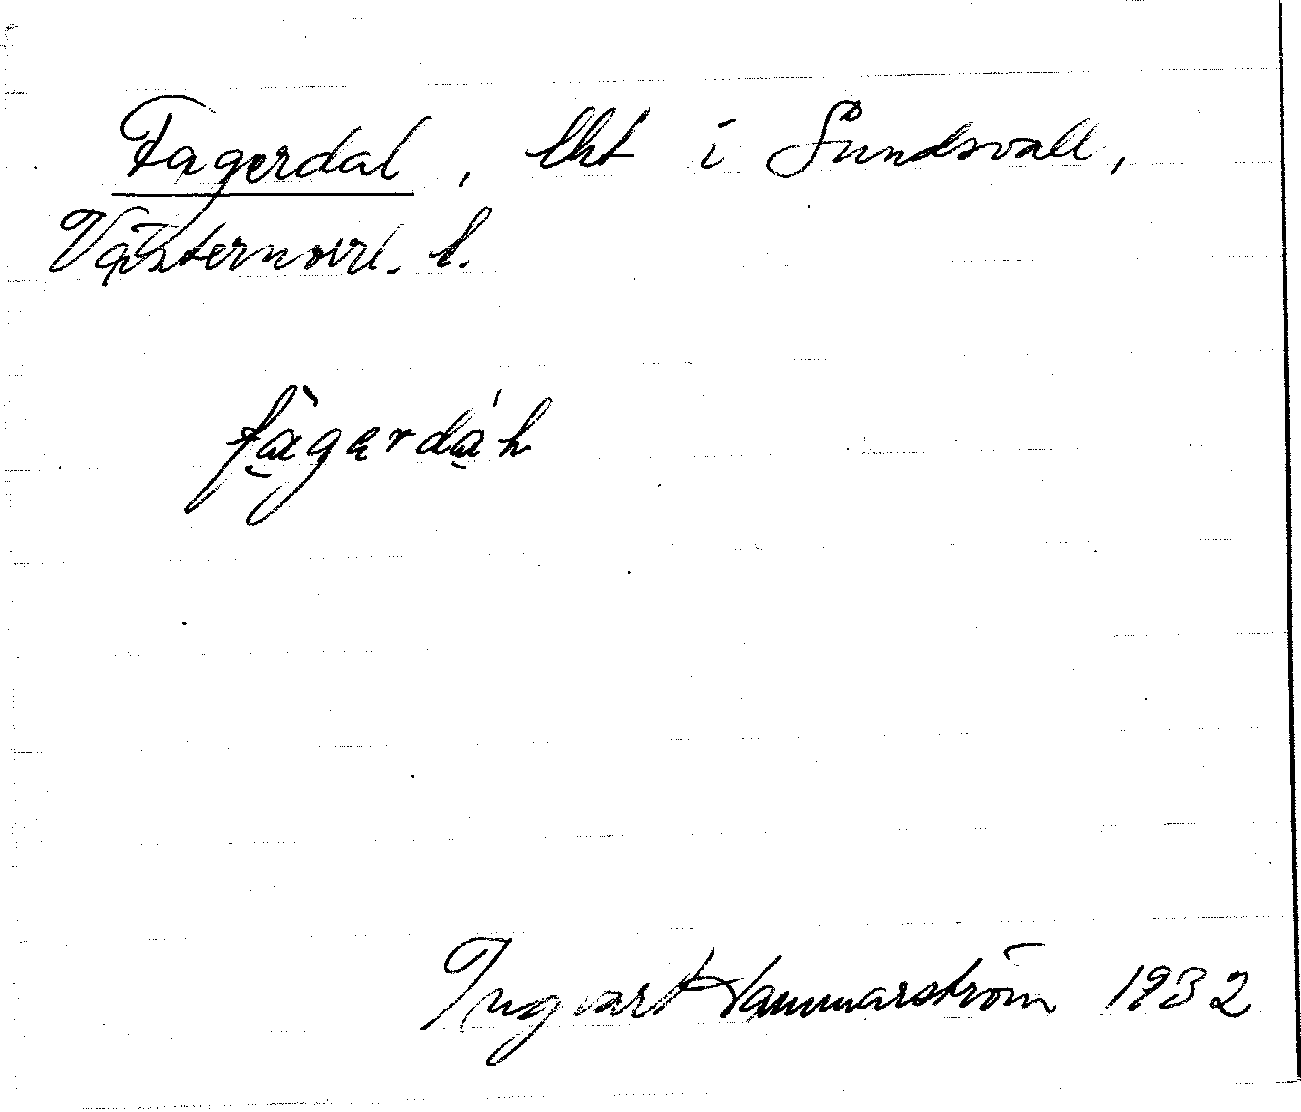 Fagerdal, lht i Sundsvall,
Västernorrl. l.
fàgardáḷ
Ingvart Hammarström 1932